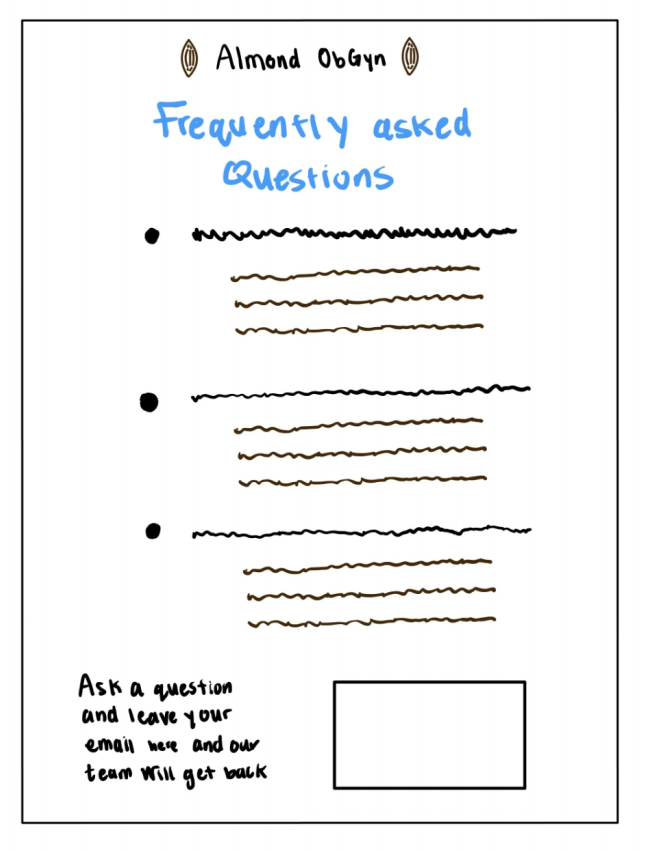 Almond ObGyn
Frequently asked
Questions
Ask a question
and leave your
email here and our
team will get back